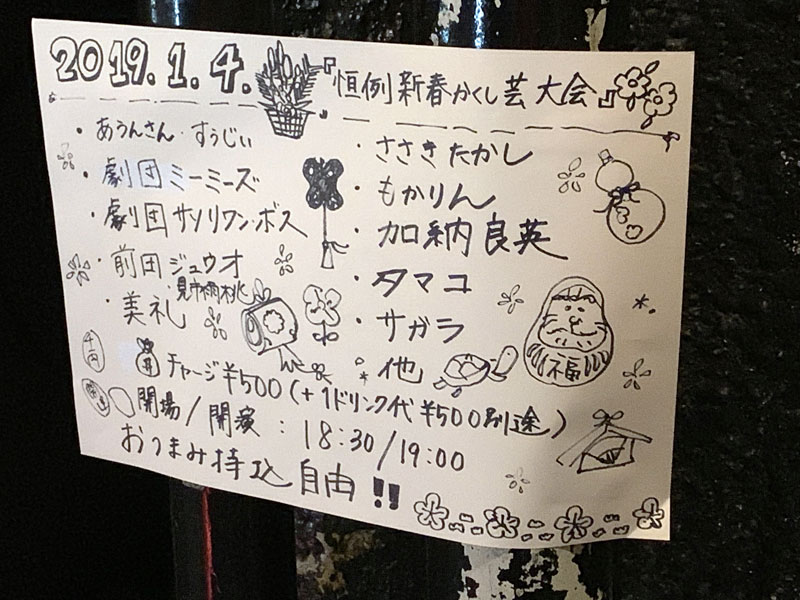 2019.1.4.『恒例新春かくし芸大会』
・あうんさん・すうじぃ
・劇団ミーミーズ
・劇団サソリワン・ボス
・前田ジュウオ
・美礼
・ささきたかし
・もかりん
・加納良英
・タマコ
・サガラ
・他
福
チャージ¥500(+1ドリンク代¥500別途)
開場/開演:18:30/19:00
おつまみ持込自由!!